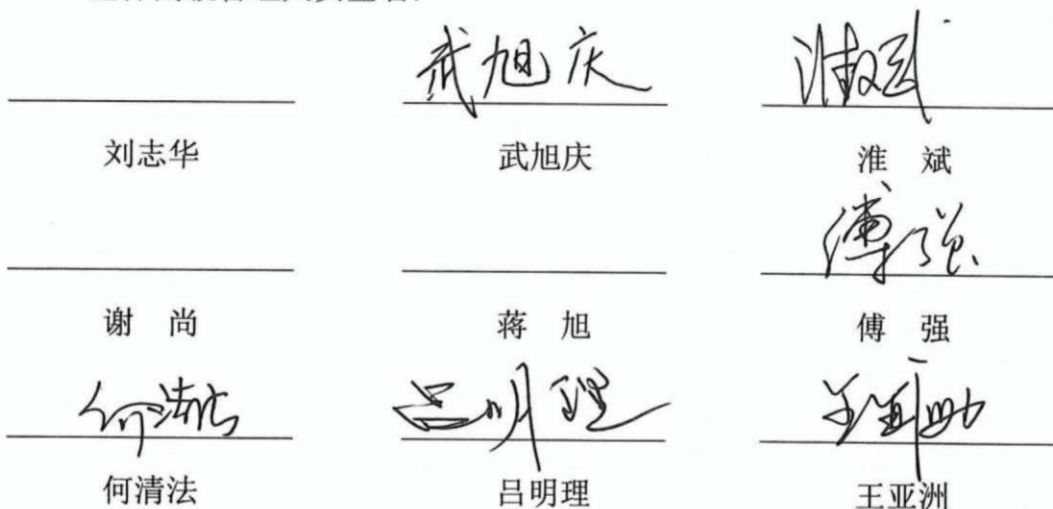 武旭庆 淮斌
刘志华 武旭庆 淮 斌
傅强
谢 尚 蒋 旭 傅 强
何清法 吕明理
何清法 吕明理 王亚洲